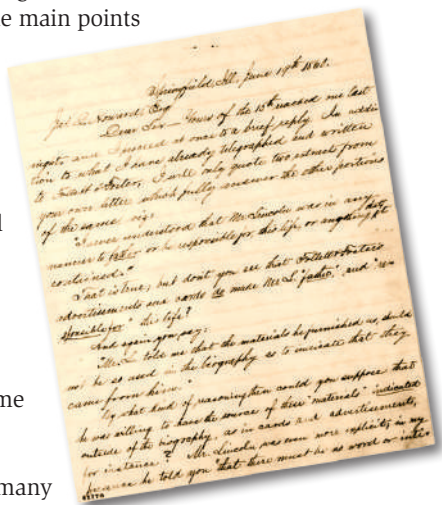 e main points
l
me
many
Springfield, Ill. June 19th 1860.
Jas. Q. Howard Esq
Dear Sir — Yours of the 15th reached me last
night, and I proceed at once to a brief reply. In addi
tion to what I have already telegraphed and written
to Follett & Foster, I will only quote two extracts from
your own letter which fully answer the other portions
of the same viz:
"I never understood that Mr. Lincoln was in any
manner to father or be responsible for this life, or anything it
contained."
That is true; but don't you see that Follett & Foster's
advertisements and cards do made Mr. L. "father," and "re-
sponsible for" this life?
And again you say:
"Mr. L. told me that the materials he furnished us, should
not be so used in the biography as to indicate that they
came from him."
By what kind of reasoning then could you suppose that
he was willing to have the source of these "materials" indicated
outside of the biography, as in cards and advertisements,
for instance? Mr. Lincoln was even more explicit in my
because he told you "that there must be no word or